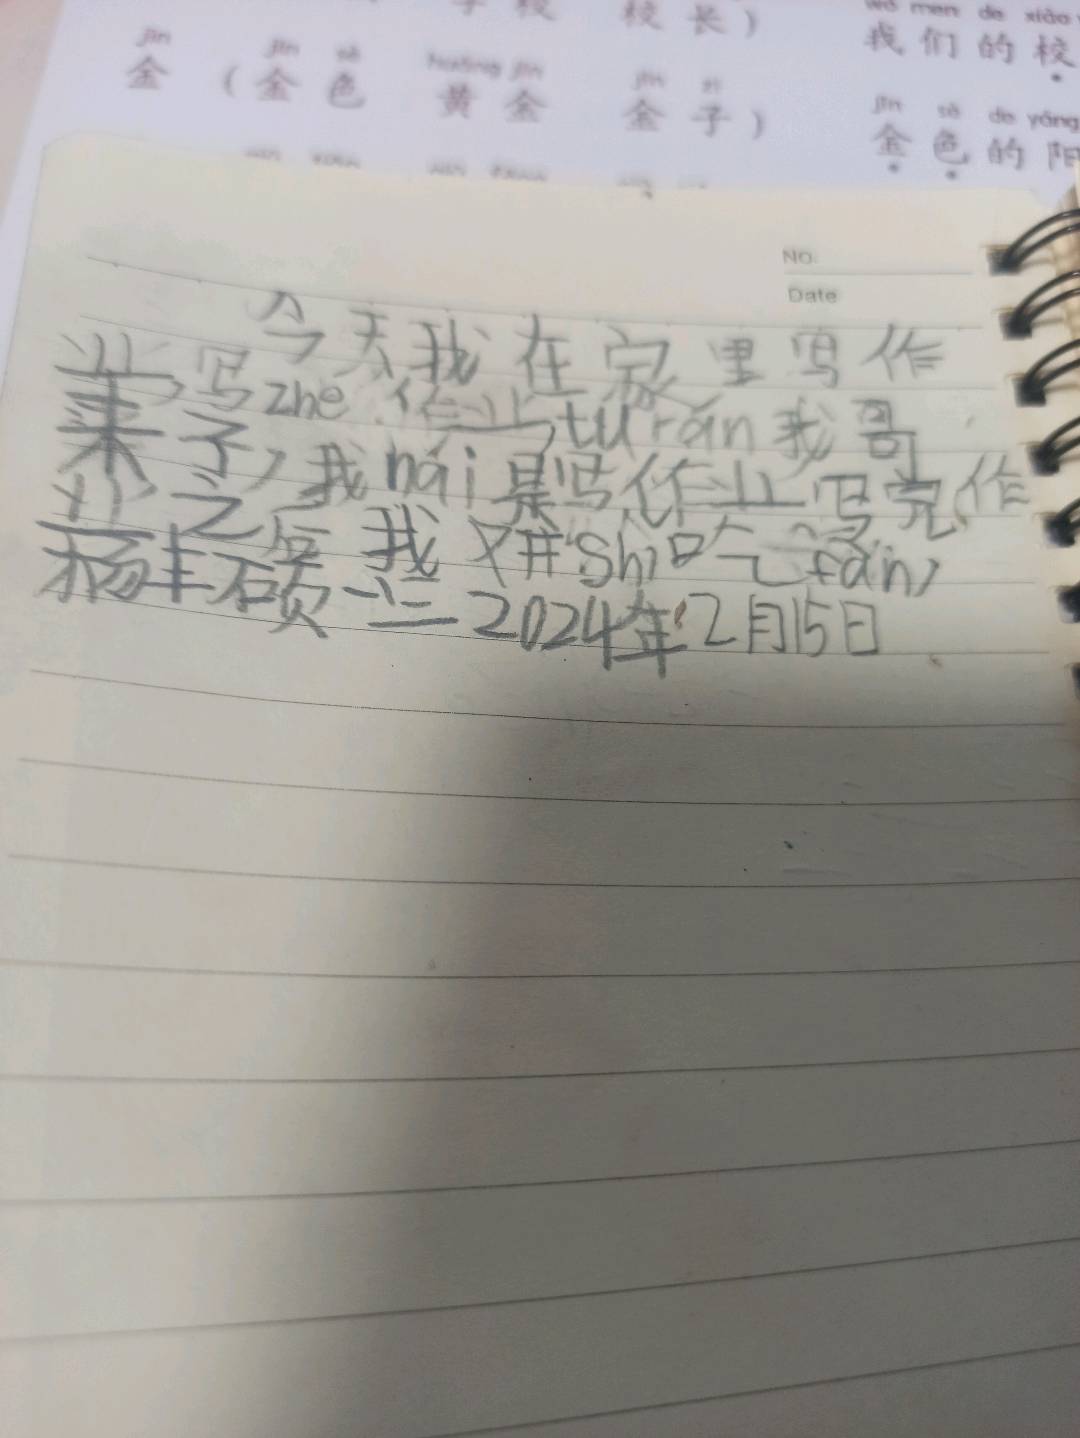 学校 校长)
wǒ men de xiào
我们的校
jīn jīn sè huáng jīn jīn zi
金 (金色 黄金 金子)
jīn sè de yáng
金色的阳
NO.
Date
今天我在家里写作
业,写zhe作业,tu rán我哥
来了,我hái是写作业写完作
业之后我开shi吃fàn,
杨丰硕一(三 2024年12月15日